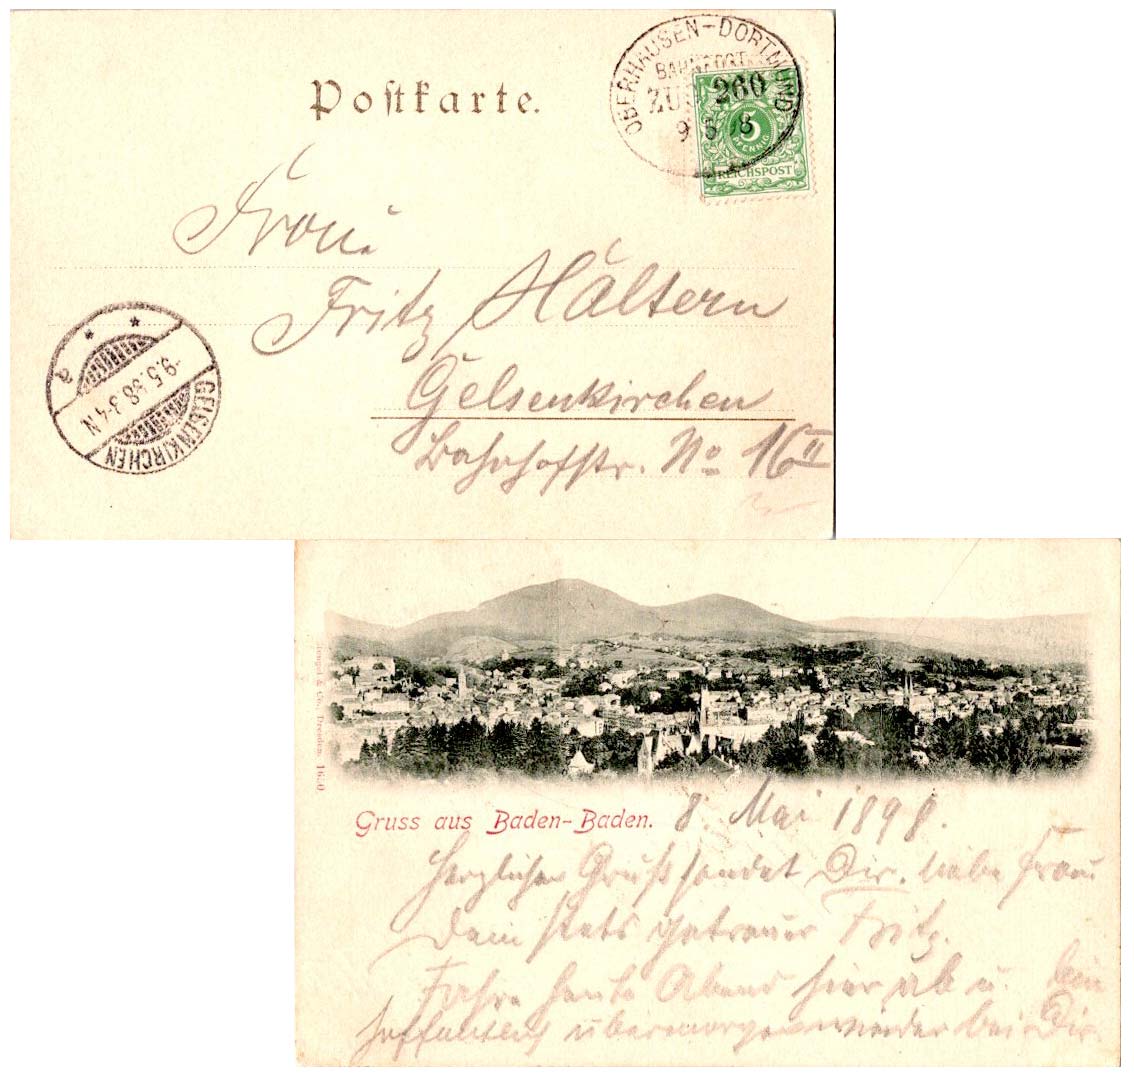 Postkarte.
OBERHAUSEN-DORTMUND
BAHNPOST
ZUG 260
9 5 98
5
PFENNIG
REICHSPOST
Frau
Fritz Hältern
Gelsenkirchen
Bahnhofstr. No 16 II
GELSENKIRCHEN
-9.5.98.3-4N.
a
Stengel & Co., Dresden. 1650
Gruss aus Baden-Baden.
8. Mai 1898.
Herzlichen Gruß sendet Dir, liebe Frau
Dein stets getreuer Fritz.
Fahre heute Abend hier ab u. bin
hoffentlich übermorgen wieder bei Dir.